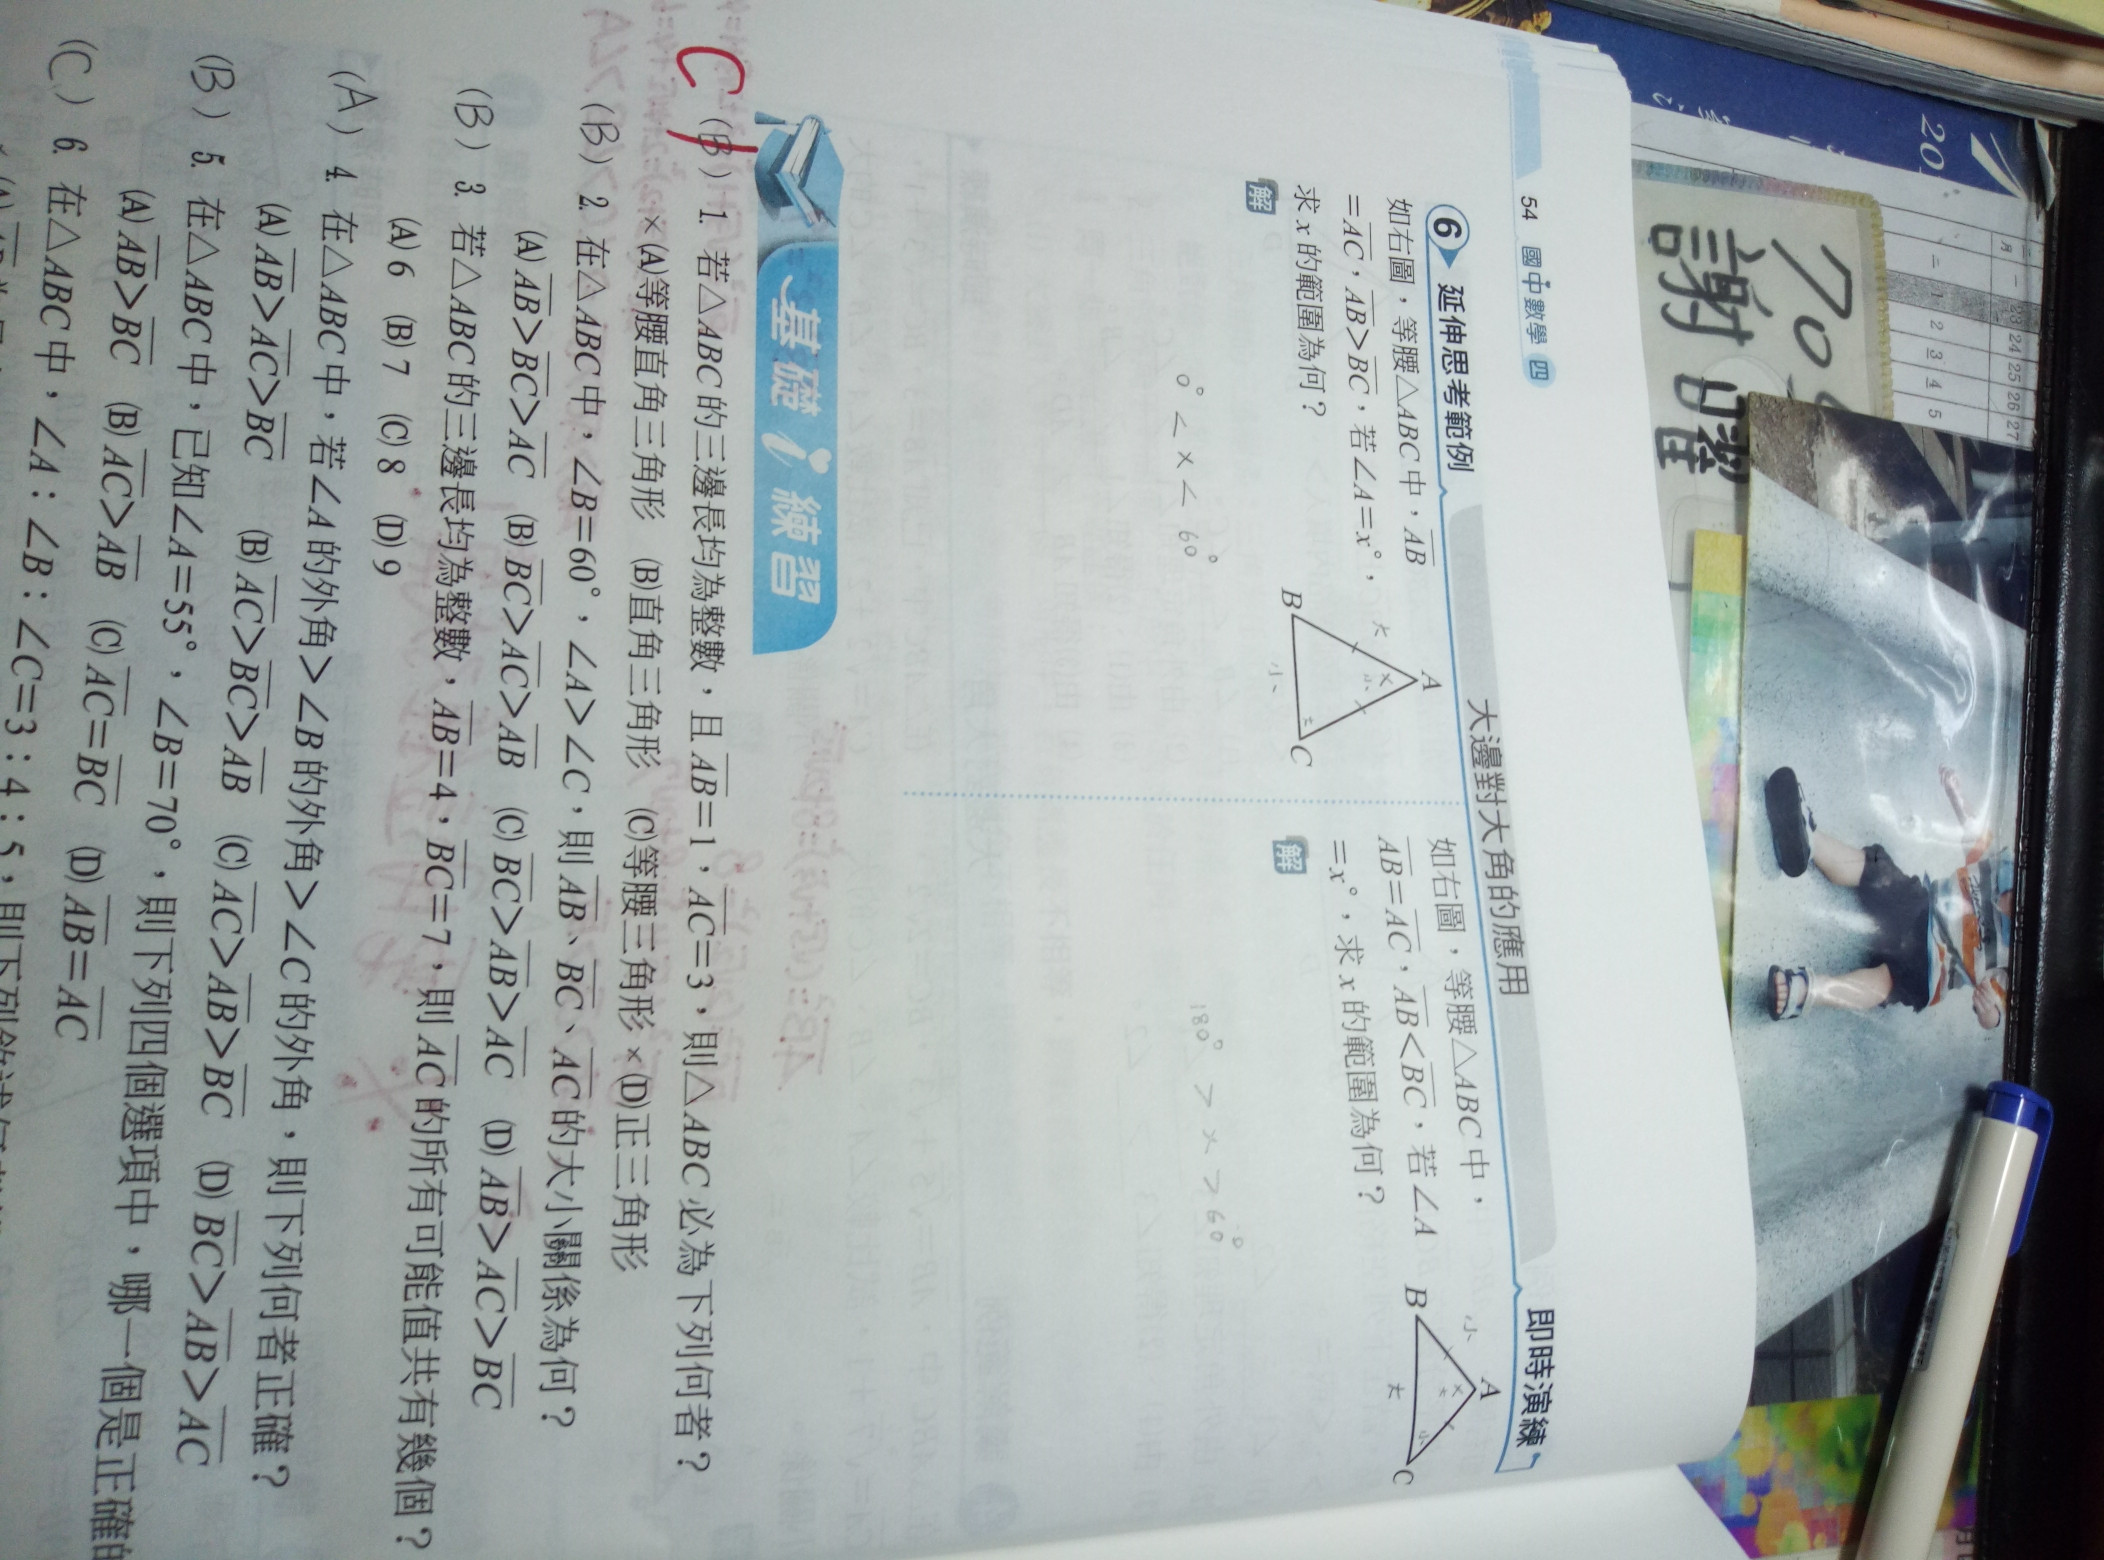 54 國中數學 四
大邊對大角的應用
6 延伸思考範例
如右圖，等腰△ABC中，AB
=AC，AB>BC，若∠A=x°，
求x的範圍為何？
解
A
B
C
大
小
x
0° < x < 60°
即時演練
如右圖，等腰△ABC中，
AB=AC，AB<BC，若∠A
=x°，求x的範圍為何？
解
A
B
C
小
大
x
180° > x > 60°
基礎 練習
C
(B) 1. 若△ABC的三邊長均為整數，且AB=1，AC=3，則△ABC必為下列何者？
×(A)等腰直角三角形 (B)直角三角形 (C)等腰三角形 ×(D)正三角形
(B) 2. 在△ABC中，∠B=60°，∠A>∠C，則AB、BC、AC的大小關係為何？
(A) AB>BC>AC (B) BC>AC>AB (C) BC>AB>AC (D) AB>AC>BC
(B) 3. 若△ABC的三邊長均為整數，AB=4，BC=7，則AC的所有可能值共有幾個？
(A) 6 (B) 7 (C) 8 (D) 9
(A) 4. 在△ABC中，若∠A的外角>∠B的外角>∠C的外角，則下列何者正確？
(A) AB>AC>BC (B) AC>BC>AB (C) AC>AB>BC (D) BC>AB>AC
(B) 5. 在△ABC中，已知∠A=55°，∠B=70°，則下列四個選項中，哪一個是正確的
(A) AB>BC (B) AC>AB (C) AC=BC (D) AB=AC
(C) 6. 在△ABC中，∠A：∠B：∠C=3：4：5，則下列敘述何
20
23 24 25 26 27
1 2 3 4 5
謝